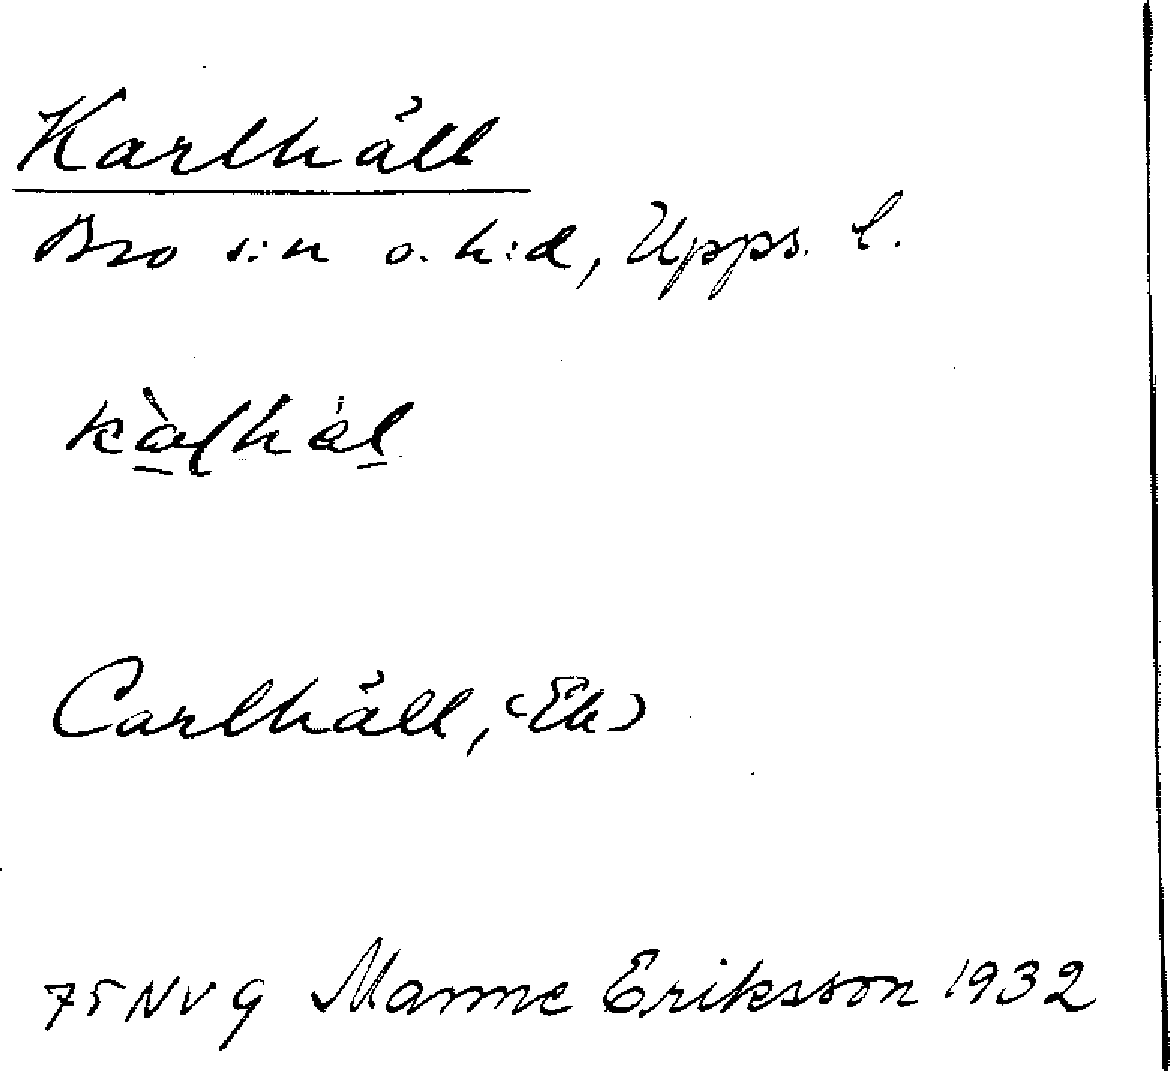 Karlhåll
Bro s:n o. h:d, Upps. l.
Carlhåll, (Ek)
75 NV g Manne Eriksson 1932